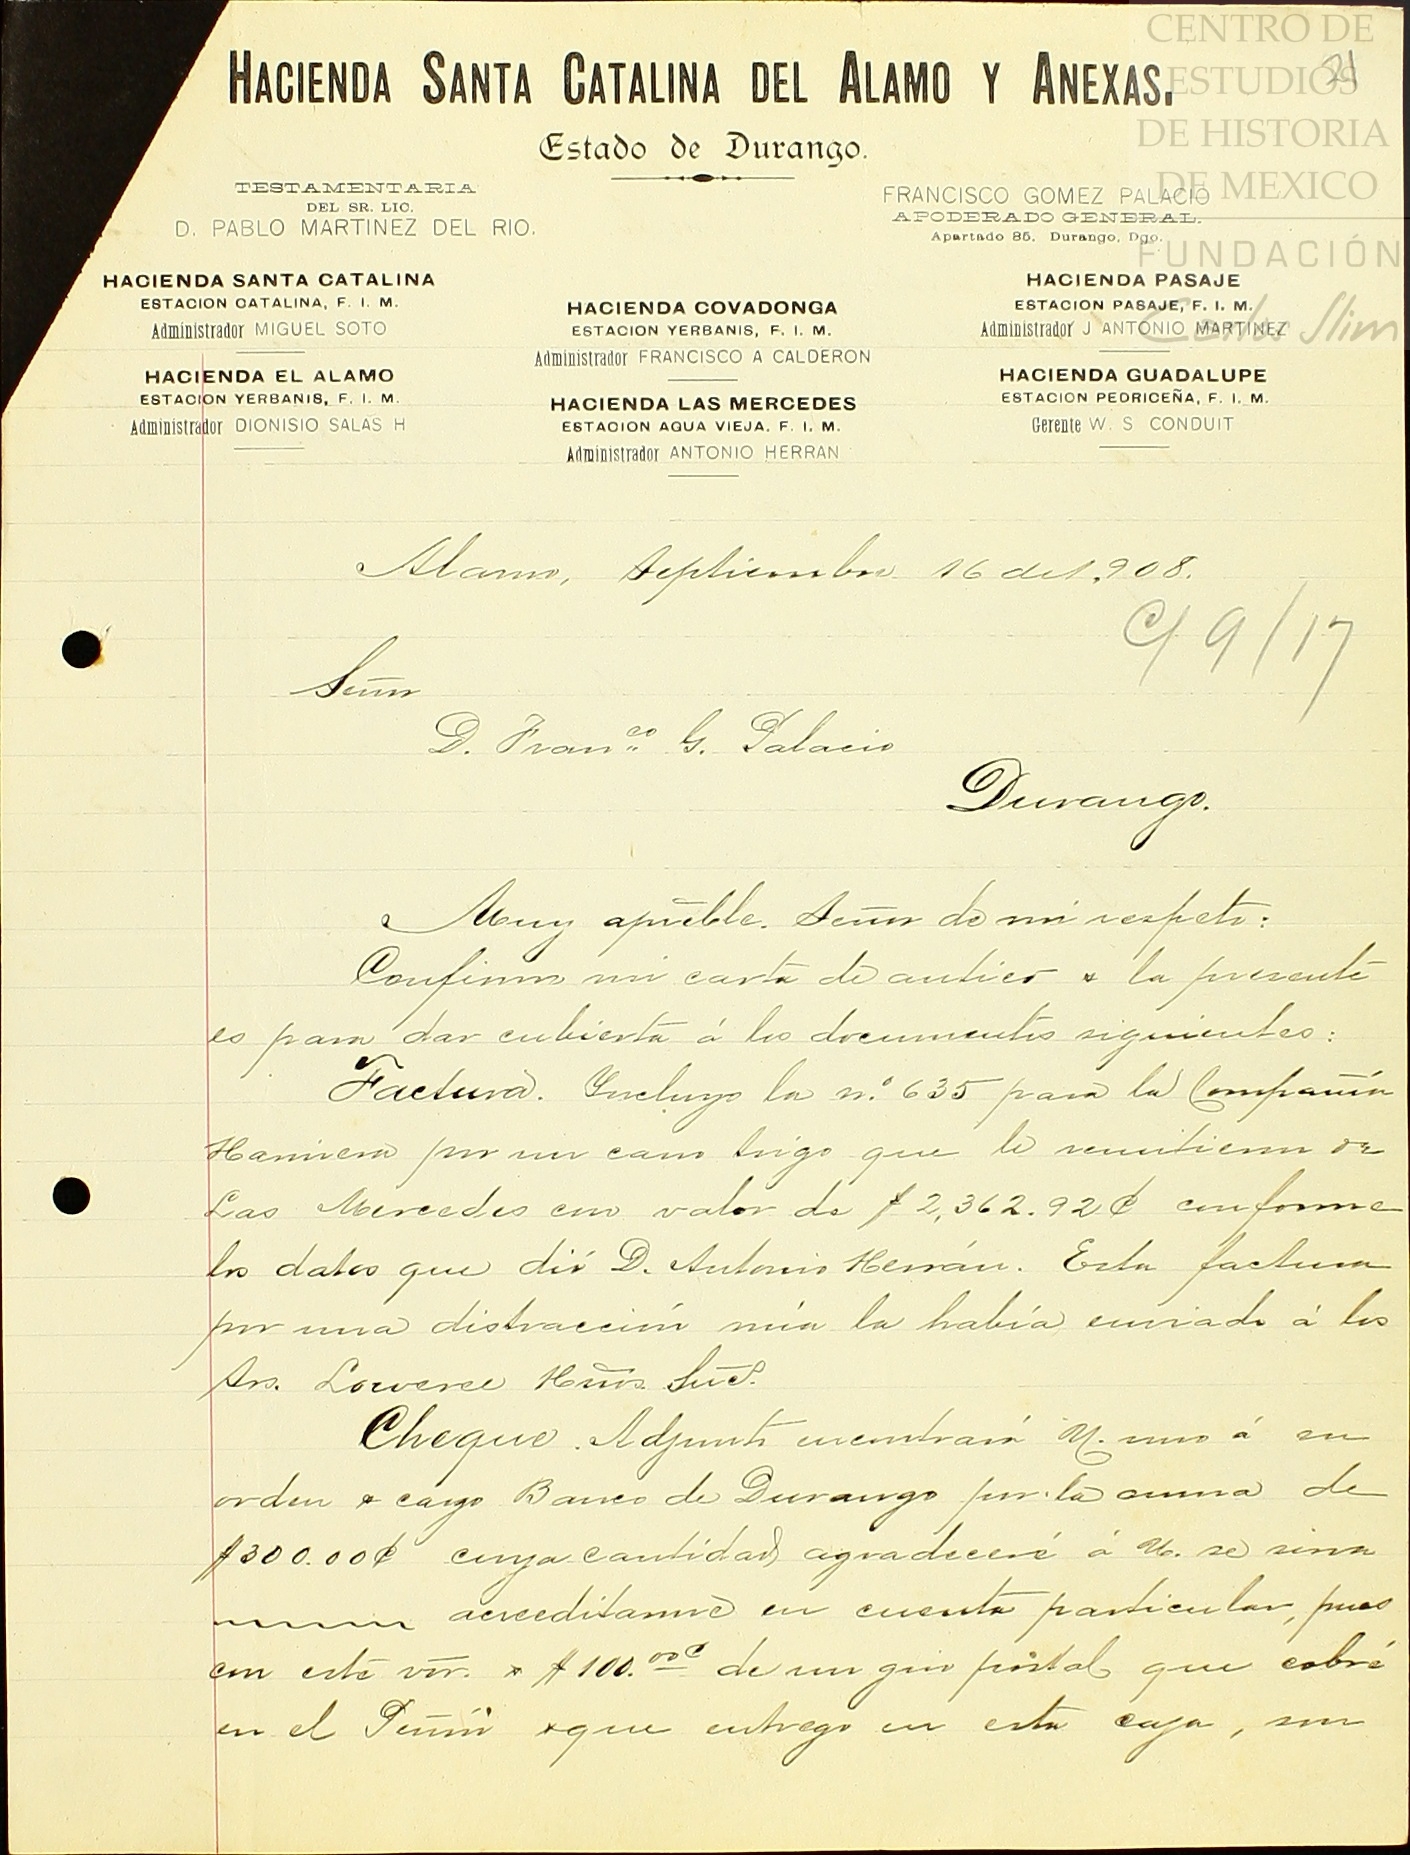 CENTRO DE
ESTUDIOS
DE HISTORIA
DE MEXICO
FUNDACIÓN
Carlos Slim
21
HACIENDA SANTA CATALINA DEL ALAMO Y ANEXAS.
Estado de Durango.
TESTAMENTARIA
DEL SR. LIC.
D. PABLO MARTINEZ DEL RIO.
FRANCISCO GOMEZ PALACIO
APODERADO GENERAL.
Apartado 85. Durango, Dgo.
HACIENDA SANTA CATALINA
ESTACION CATALINA, F. I. M.
Administrador MIGUEL SOTO
HACIENDA EL ALAMO
ESTACION YERBANIS, F. I. M.
Administrador DIONISIO SALAS H
HACIENDA COVADONGA
ESTACION YERBANIS, F. I. M.
Administrador FRANCISCO A CALDERON
HACIENDA LAS MERCEDES
ESTACION AGUA VIEJA. F. I. M.
Administrador ANTONIO HERRAN
HACIENDA PASAJE
ESTACION PASAJE, F. I. M.
Administrador J ANTONIO MARTINEZ
HACIENDA GUADALUPE
ESTACION PEDRICEÑA, F. I. M.
Gerente W. S CONDUIT
Alamo, Septiembre 16 de 1,908.
C/ 9/17
Señor
D. Franco G. Palacio
Durango.
Muy apreble. Señor de mi respeto:
Confirmo mi carta de antier & la presente
es para dar cubierta á los documentos siguientes:
Factura. Incluyo la n.º 635 para la Compañía
Harinera por un carro trigo que le remitieron de
Las Mercedes con valor de $2,362.92¢ conforme
los datos que dió D. Antonio Herrán. Esta factura
por una distracción mía la había enviado á los
Srs. Hños. Suc.
Cheque. Adjunto encontrará U. uno á su
orden & cargo Banco de Durango por la suma de
$300.00¢ cuya cantidad agradeceré á U. se sirva
acreditarme en cuenta particular, pues
con este vor. & $100.00¢ de un giro postal que cobré
en el Peñón & que entrego en esta caja, son